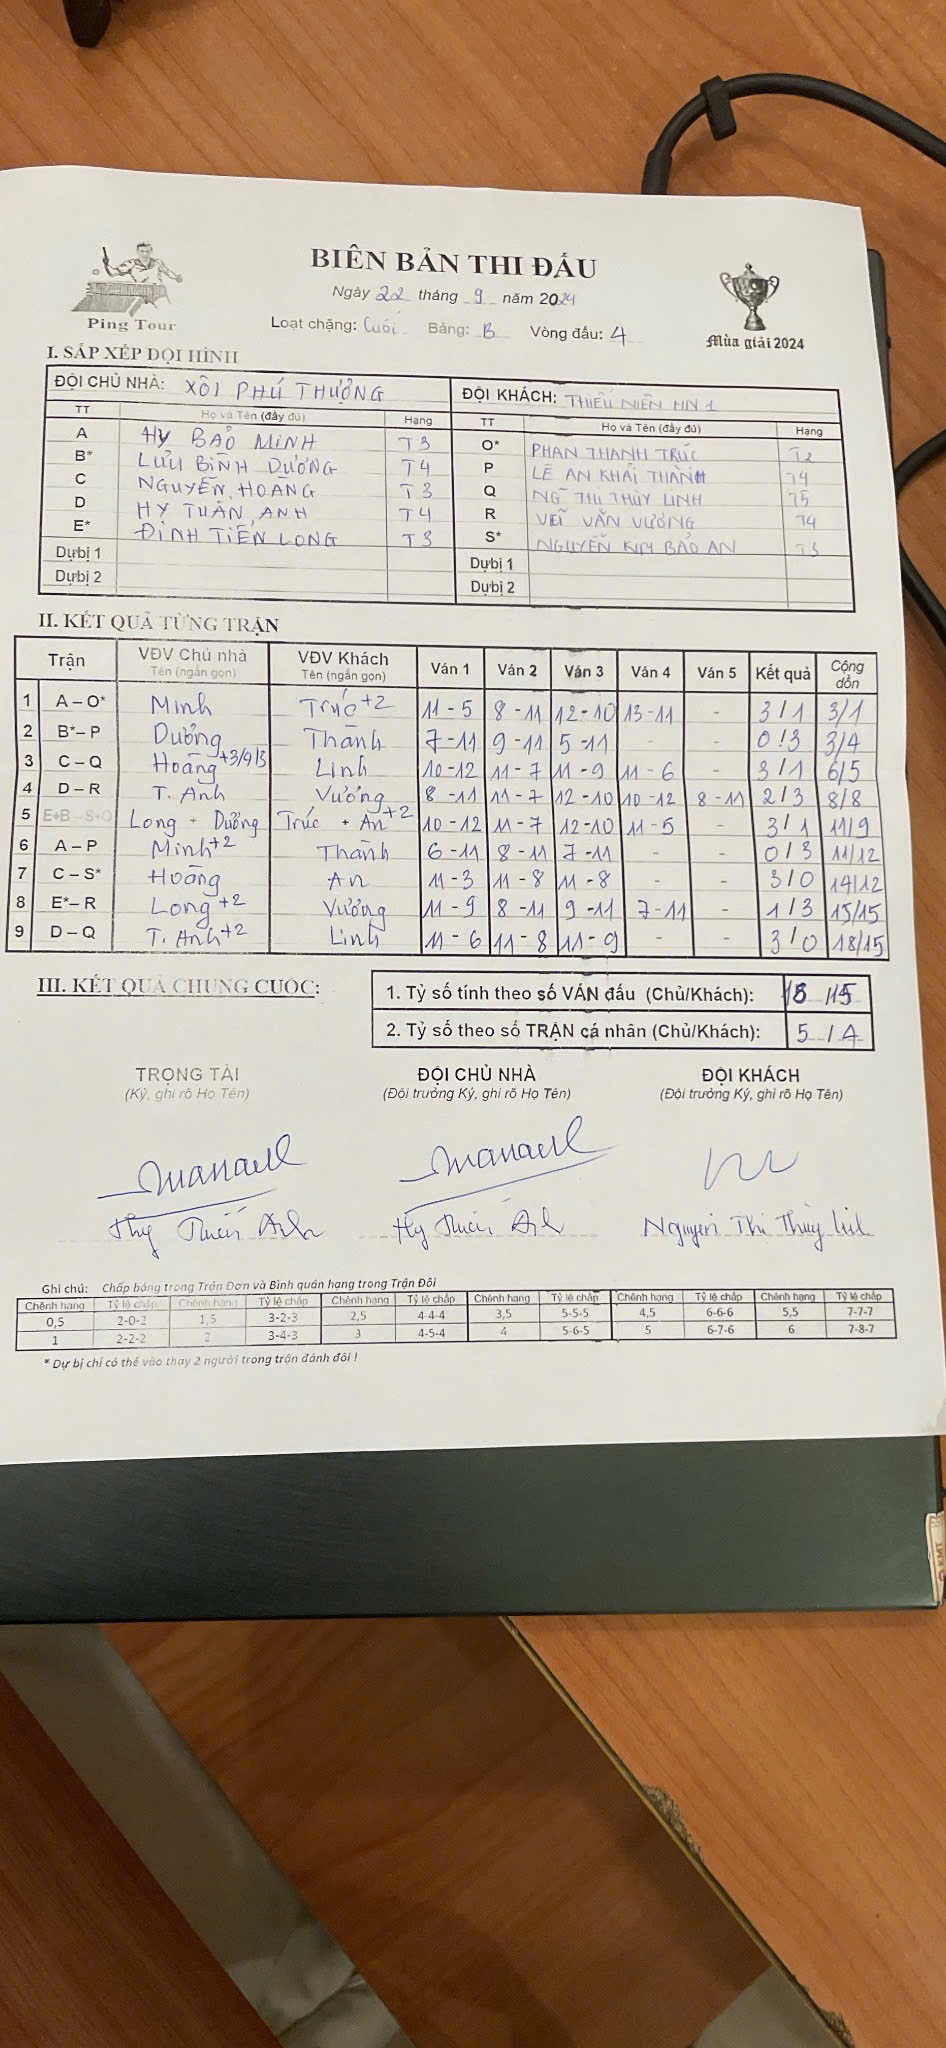 BIÊN BẢN THI ĐẤU
Ngày 22 tháng 9 năm 2024
Ping Tour
Loạt chặng: Cuối Bảng: B Vòng đấu: 4
Mùa giải 2024
I. SẮP XẾP ĐỘI HÌNH
ĐỘI CHỦ NHÀ: XÔI PHÚ THƯỢNG ĐỘI KHÁCH: THIẾU NIÊN HN 1
TT Họ và Tên (đầy đủ) Hạng TT Họ và Tên (đầy đủ) Hạng
A HY BẢO MINH T3 O* PHAN THANH TRÚC T2
B* LƯU BÌNH DƯƠNG T4 P LÊ AN KHẢI THÀNH T4
C NGUYỄN HOÀNG T3 Q NG THỊ THÙY LINH T5
D HY TUẤN ANH T4 R VĂN VƯƠNG T4
E* ĐINH TIẾN LONG T3 S* NGUYỄN KIM BẢO AN T3
Dự bị 1 Dự bị 1
Dự bị 2 Dự bị 2
II. KẾT QUẢ TỪNG TRẬN
Trận VĐV Chủ nhà Tên (ngắn gọn) VĐV Khách Tên (ngắn gọn) Ván 1 Ván 2 Ván 3 Ván 4 Ván 5 Kết quả Cộng dồn
1 A – O* Minh Trúc +2 11 - 5 8 - 11 12 - 10 13 - 11 - 3 / 1 3/1
2 B* – P Dương Thành 7 - 11 9 - 11 5 - 11 - - 0 / 3 3/4
3 C – Q Hoàng +3/4/3 Linh 10 - 12 11 - 7 11 - 9 11 - 6 - 3 / 1 6/5
4 D – R T. Anh Vương 8 - 11 11 - 7 12 - 10 10 - 12 8 - 11 2 / 3 8/8
5 E+B – S+O Long + Dương Trúc + An +2 10 - 12 11 - 7 12 - 10 11 - 5 - 3 / 1 11/9
6 A – P Minh +2 Thành 6 - 11 8 - 11 7 - 11 - - 0 / 3 11/12
7 C – S* Hoàng An 11 - 3 11 - 8 11 - 8 - - 3 / 0 14/12
8 E* – R Long +2 Vương 11 - 9 8 - 11 9 - 11 7 - 11 - 1 / 3 15/15
9 D – Q T. Anh +2 Linh 11 - 6 11 - 8 11 - 9 - - 3 / 0 18/15
III. KẾT QUẢ CHUNG CUỘC:
1. Tỷ số tính theo số VÁN đấu (Chủ/Khách): 18 / 15
2. Tỷ số theo số TRẬN cá nhân (Chủ/Khách): 5 / 4
TRỌNG TÀI ĐỘI CHỦ NHÀ ĐỘI KHÁCH
(Ký, ghi rõ Họ Tên) (Đội trưởng Ký, ghi rõ Họ Tên) (Đội trưởng Ký, ghi rõ Họ Tên)
Hy Tuấn Anh Hy Tuấn Anh Nguyễn Thị Thùy Linh
Ghi chú: Chấp bóng trong Trận Đơn và Bình quân hạng trong Trận Đôi
Chênh hạng Tỷ lệ chấp Chênh hạng Tỷ lệ chấp Chênh hạng Tỷ lệ chấp Chênh hạng Tỷ lệ chấp Chênh hạng Tỷ lệ chấp Chênh hạng Tỷ lệ chấp
0,5 2-0-2 1,5 3-2-3 2,5 4-4-4 3,5 5-5-5 4,5 6-6-6 5,5 7-7-7
1 2-2-2 2 3-4-3 3 4-5-4 4 5-6-5 5 6-7-6 6 7-8-7
* Dự bị chỉ có thể vào thay 2 người trong trận đánh đôi !